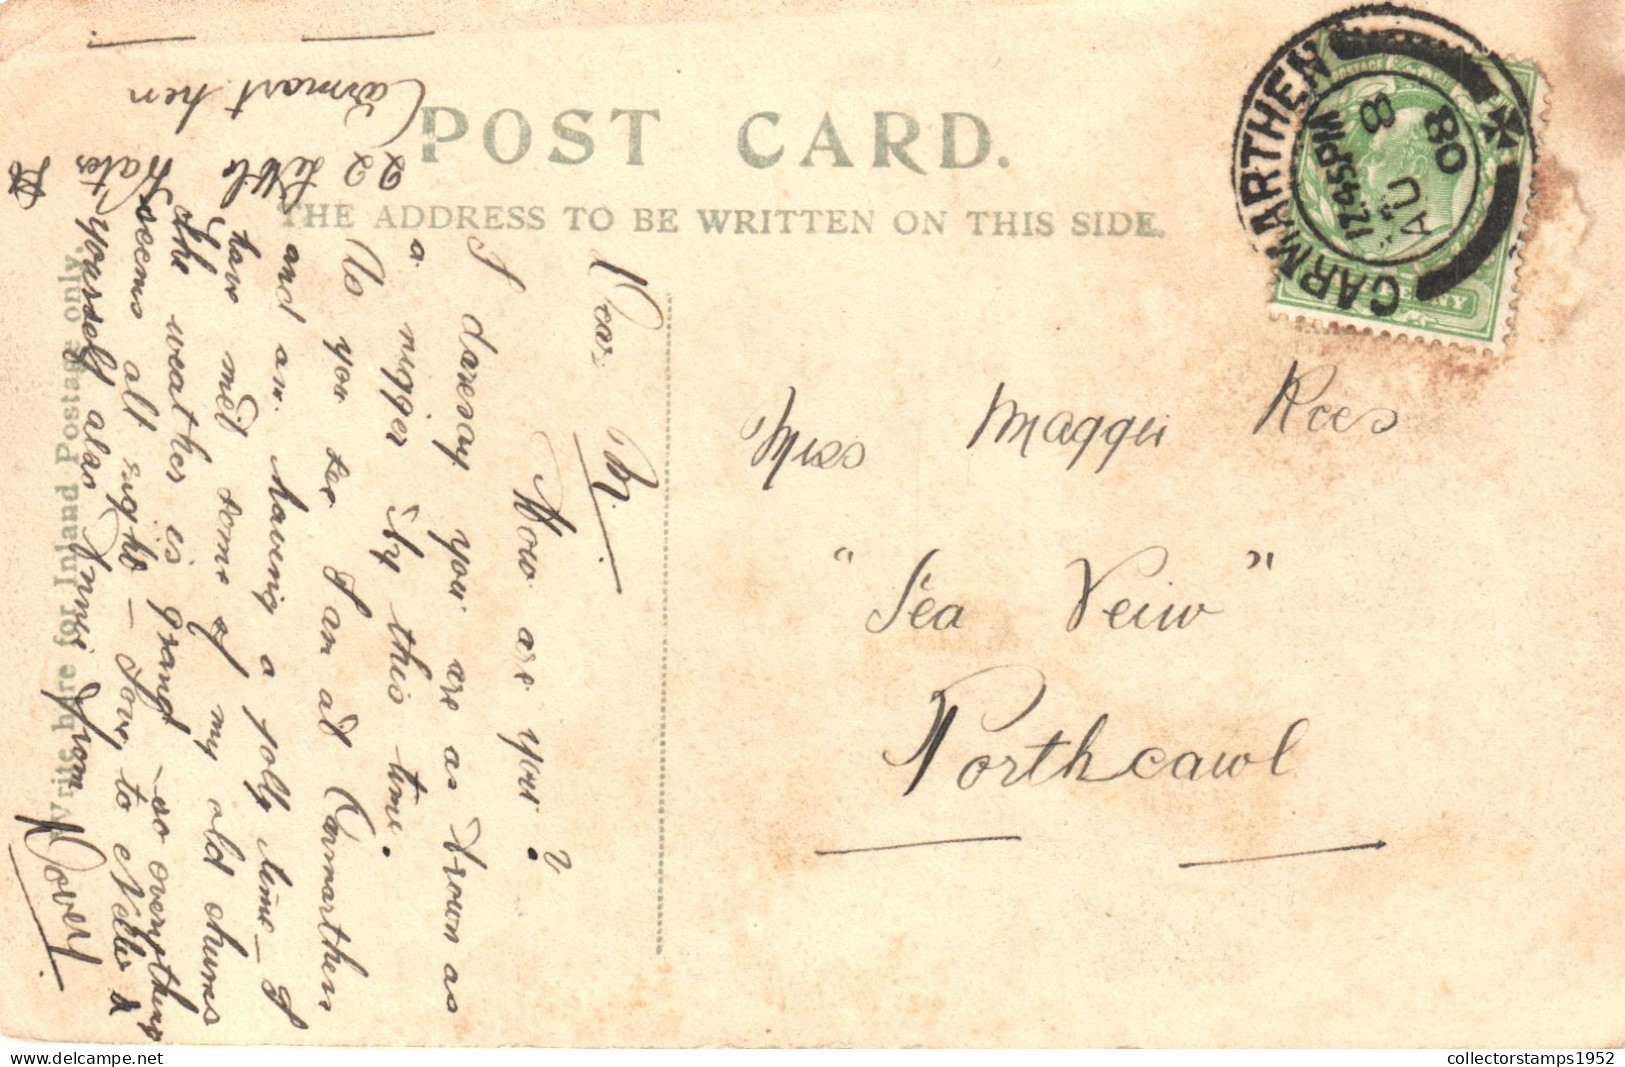 POST CARD.
THE ADDRESS TO BE WRITTEN ON THIS SIDE.
Write here for Inland Postage only.
CARMARTHEN
12.45PM
AU 8
08
PENNY
Miss Maggie Rees
"Sea Veiw"
Porthcawl
22
Carmarthen
Dear M.
How are you?
I daresay you are as brown as
a nigger by this time.
As you see I am at Carmarthen
and am having a jolly time - I
have met some of my old chums
The weather is grand - so everything
seems all right - Love to Nellie &
yourself also Annie From
Dover
collectorstamps1952